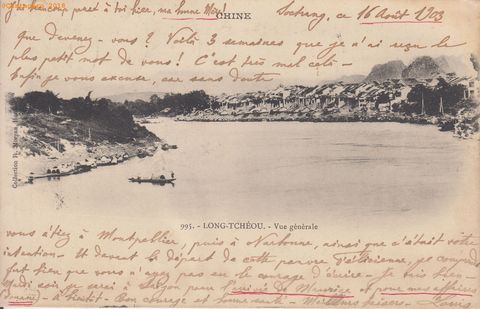 J'ai beaucoup pensé à toi hier, ma bonne Mimi!
CHINE
Soctrang, ce 16 Août 1903
que devenez-vous? Voilà 3 semaines que je n'ai reçu le
plus petit mot de vous! C'est très mal cela-
Enfin je vous excuse, car sans doute
Collection R.
995. - LONG-TCHÉOU. - Vue générale
vous étiez à Montpellier, puis à Narbonne, ainsi que c'était votre
intention - Et devant le départ de cette pauvre Félicienne, je comprends
fort bien que vous n'ayez pas eu le courage d'écrire - Je vais bien -
Mardi soir je serai à Saïgon pour l'arrivée de Maurice et pour mes affaires
(Douane) - A bientôt - Bon courage et bonne santé - Meilleurs baisers - Louis